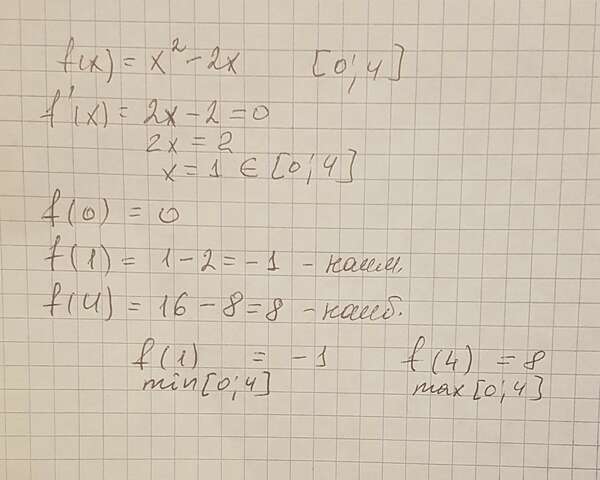 f(x) = x² - 2x [0; 4]
f'(x) = 2x - 2 = 0
2x = 2
x = 1 ∈ [0; 4]
f(0) = 0
f(1) = 1 - 2 = -1 - наим.
f(4) = 16 - 8 = 8 - наиб.
f(1) = -1 f(4) = 8
min [0; 4] max [0; 4]